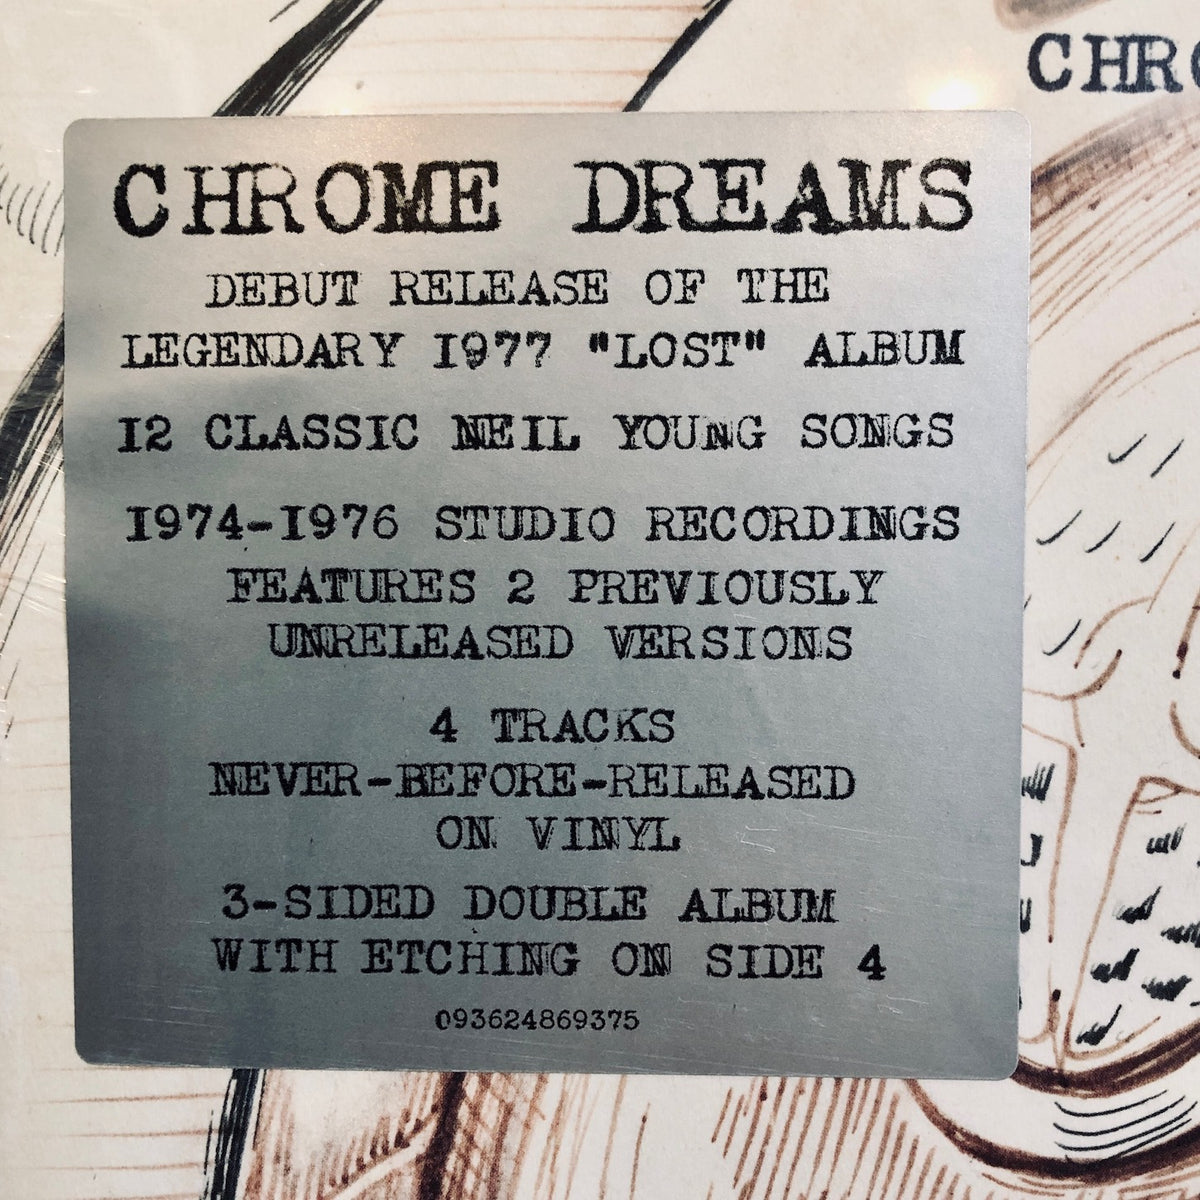 CHRO
CHROME DREAMS
DEBUT RELEASE OF THE
LEGENDARY 1977 "LOST" ALBUM
12 CLASSIC NEIL YOUNG SONGS
1974-1976 STUDIO RECORDINGS
FEATURES 2 PREVIOUSLY
UNRELEASED VERSIONS
4 TRACKS
NEVER-BEFORE-RELEASED
ON VINYL
3-SIDED DOUBLE ALBUM
WITH ETCHING ON SIDE 4
093624869375